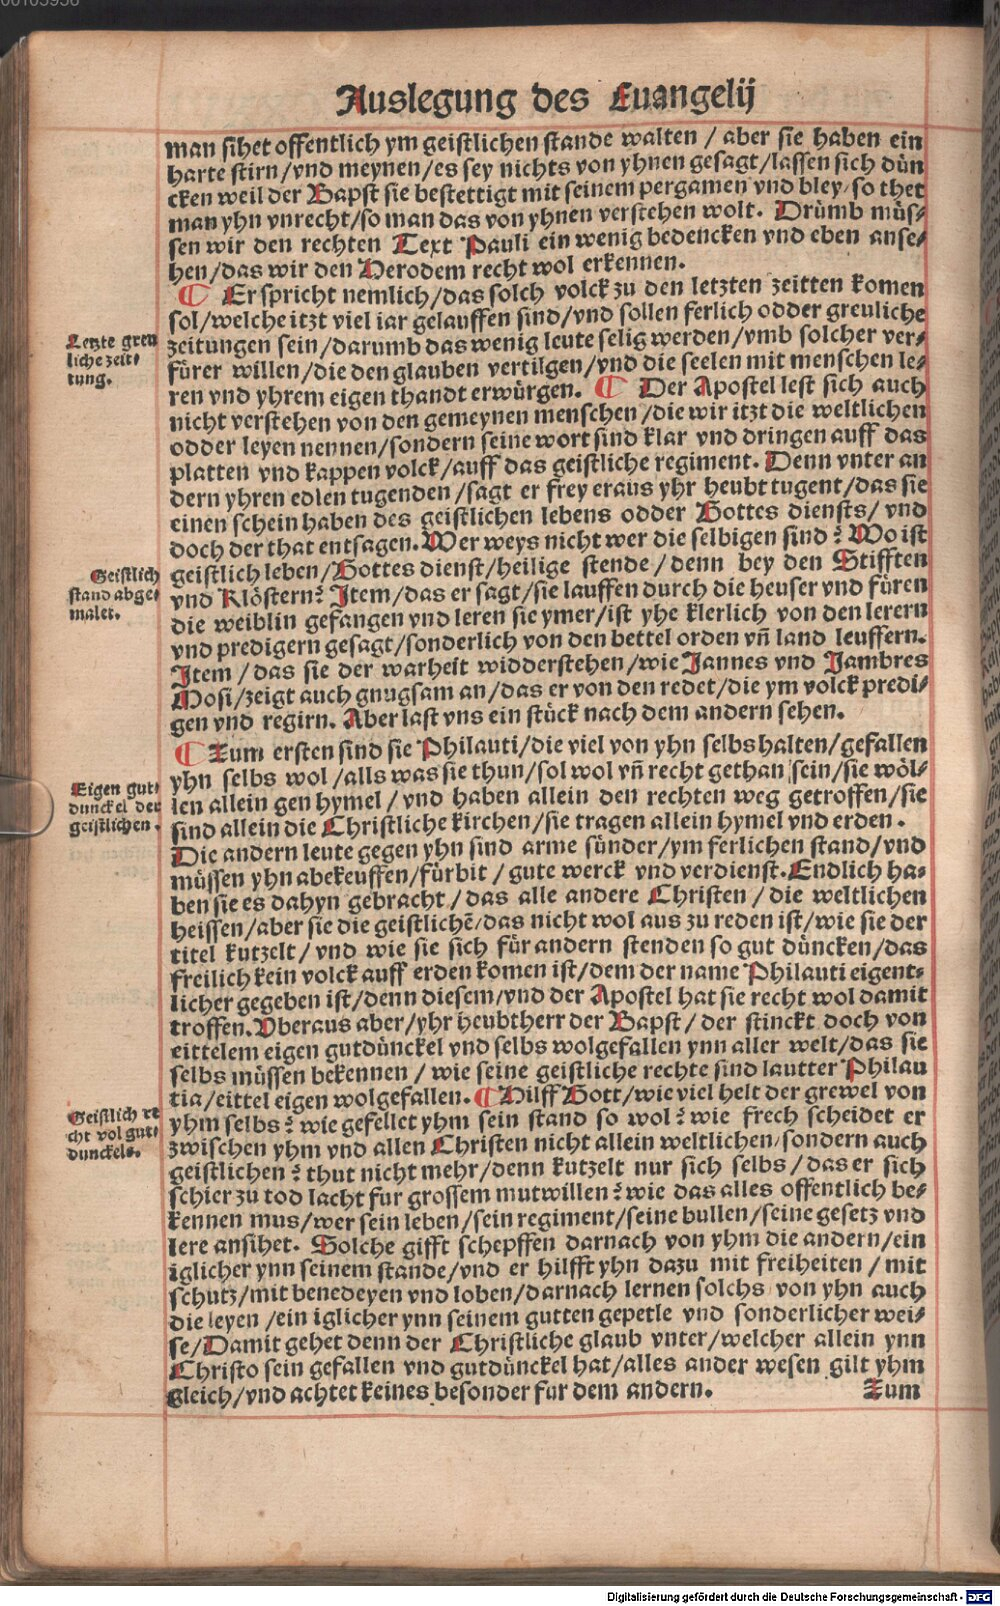 00105956
Auslegung des Euangelij
man sihet offentlich ym geistlichen stande walten / aber sie haben ein
harte stirn/vnd meynen/es sey nichts von yhnen gesagt/lassen sich dün
cken weil der Bapst sie bestettigt mit seinem pergamen vnd bley/so thet
man yhn vnrecht/so man das von yhnen verstehen wolt. Drümb müs-
sen wir den rechten Text Pauli ein wenig bedencken vnd eben anse-
hen/das wir den Herodem recht wol erkennen.
¶ Er spricht nemlich/das solch volck zu den letzten zeitten komen
sol/welche itzt viel iar gelauffen sind/vnd sollen ferlich odder greuliche
Letzte greu
liche zeit-
tung.
zeitungen sein/darumb das wenig leute selig werden/vmb solcher ver-
fürer willen/die den glauben vertilgen/vnd die seelen mit menschen le-
ren vnd yhrem eigen thandt erwürgen. ¶ Der Apostel lest sich auch
nicht verstehen von den gemeynen menschen/die wir itzt die weltlichen
odder leyen nennen/sondern seine wort sind klar vnd dringen auff das
platten vnd kappen volck/auff das geistliche regiment. Denn vnter an
dern yhren edlen tugenden/sagt er frey eraus yhr heubt tugent/das sie
einen schein haben des geistlichen lebens odder Gottes diensts/ vnd
doch der that entsagen. Wer weys nicht wer die selbigen sind? Wo ist
Geistlich
stand abge-
malet.
geistlich leben/Gottes dienst/heilige stende/ denn bey den Stifften
vnd Klöstern? Item/das er sagt/sie lauffen durch die heuser vnd füren
die weiblin gefangen vnd leren sie ymer/ist yhe klerlich von den lerern
vnd predigern gesagt/sonderlich von den bettel orden vñ land leuffern.
Item / das sie der warheit widderstehen/wie Jannes vnd Jambres
Mosi/zeigt auch gnugsam an/das er von den redet/die ym volck predi-
gen vnd regirn. Aber last vns ein stück nach dem andern sehen.
¶ Zum ersten sind sie Philauti/die viel von yhn selbs halten/gefallen
Eigen gut-
dunckel der
geistlichen.
yhn selbs wol/alls was sie thun/sol wol vñ recht gethan sein/sie wöl-
len allein gen hymel / vnd haben allein den rechten weg getroffen/sie
sind allein die Christliche kirchen/sie tragen allein hymel vnd erden.
Die andern leute gegen yhn sind arme sünder/ym ferlichen stand/vnd
müssen yhn abekeuffen/fürbit / gute werck vnd verdienst. Endlich ha-
ben sie es dahyn gebracht / das alle andere Christen / die weltlichen
heissen/aber sie die geistlichẽ/das nicht wol aus zu reden ist/wie sie der
titel kutzelt / vnd wie sie sich für andern stenden so gut düncken/das
freilich kein volck auff erden komen ist/dem der name Philauti eigent-
licher gegeben ist/denn diesem/vnd der Apostel hat sie recht wol damit
troffen. Vberaus aber/yhr heubtherr der Bapst/ der stinckt doch von
eittelem eigen gutdünckel vnd selbs wolgefallen ynn aller welt/das sie
selbs müssen bekennen / wie seine geistliche rechte sind lautter Philau
Geistlich re
cht vol gut-
dunckels.
tia/eittel eigen wolgefallen. ¶ Hilff Gott/wie viel helt der grewel von
yhm selbs? wie gefellet yhm sein stand so wol? wie frech scheidet er
zwischen yhm vnd allen Christen nicht allein weltlichen/sondern auch
geistlichen? thut nicht mehr/denn kutzelt nur sich selbs/das er sich
schier zu tod lacht fur grossem mutwillen? wie das alles offentlich be-
kennen mus/wer sein leben/sein regiment/seine bullen/seine gesetz vnd
lere ansihet. Solche gifft schepffen darnach von yhm die andern/ein
iglicher ynn seinem stande/vnd er hilfft yhn dazu mit freiheiten / mit
schutz/mit benedeyen vnd loben/darnach lernen solchs von yhn auch
die leyen /ein iglicher ynn seinem gutten gepetle vnd sonderlicher wei-
se/Damit gehet denn der Christliche glaub vnter/welcher allein ynn
Christo sein gefallen vnd gutdünckel hat/alles ander wesen gilt yhm
gleich/vnd achtet keines besonder fur dem andern.
Zum
Digitalisierung gefördert durch die Deutsche Forschungsgemeinschaft - DFG